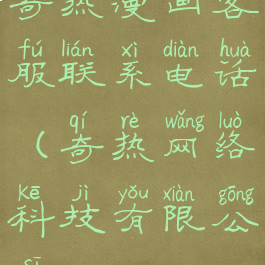 奇热漫画客
fú lián xì diàn huà
服联系电话
qí rè wǎng luò
（奇热网络
kē jì yǒu xiàn gōng
科技有限公
sī